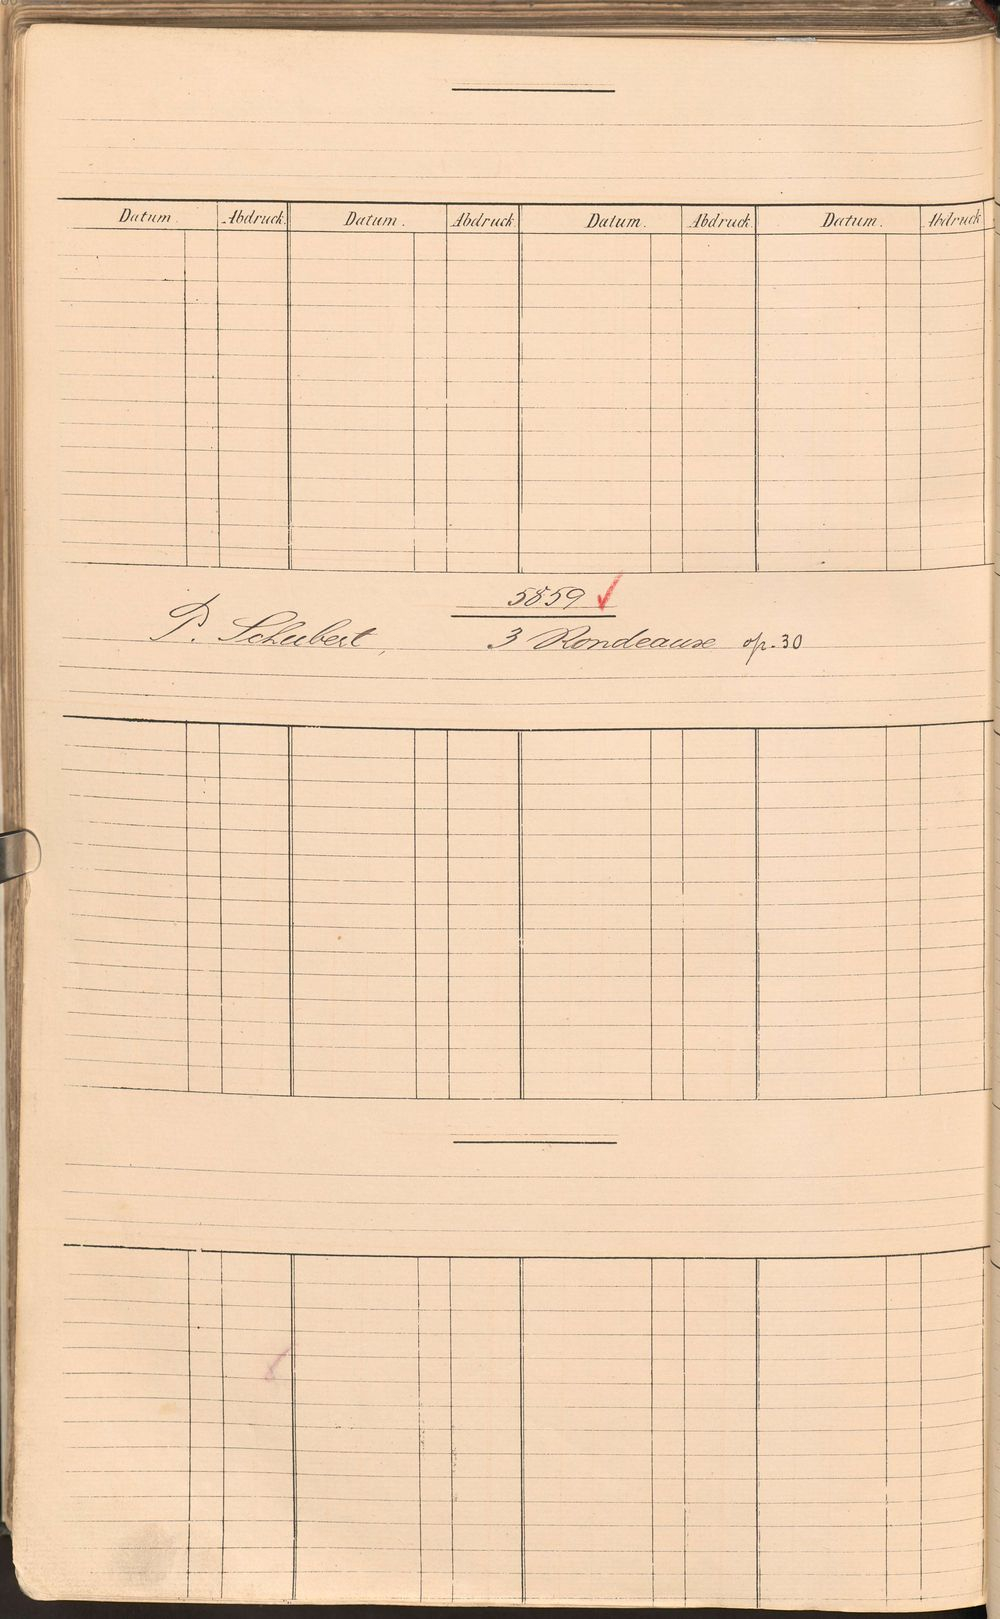 Datum. Abdruck. Datum. Abdruck. Datum. Abdruck. Datum. Abdruck
5859 ✓
P. Schubert, 3 Rondeaux op. 30